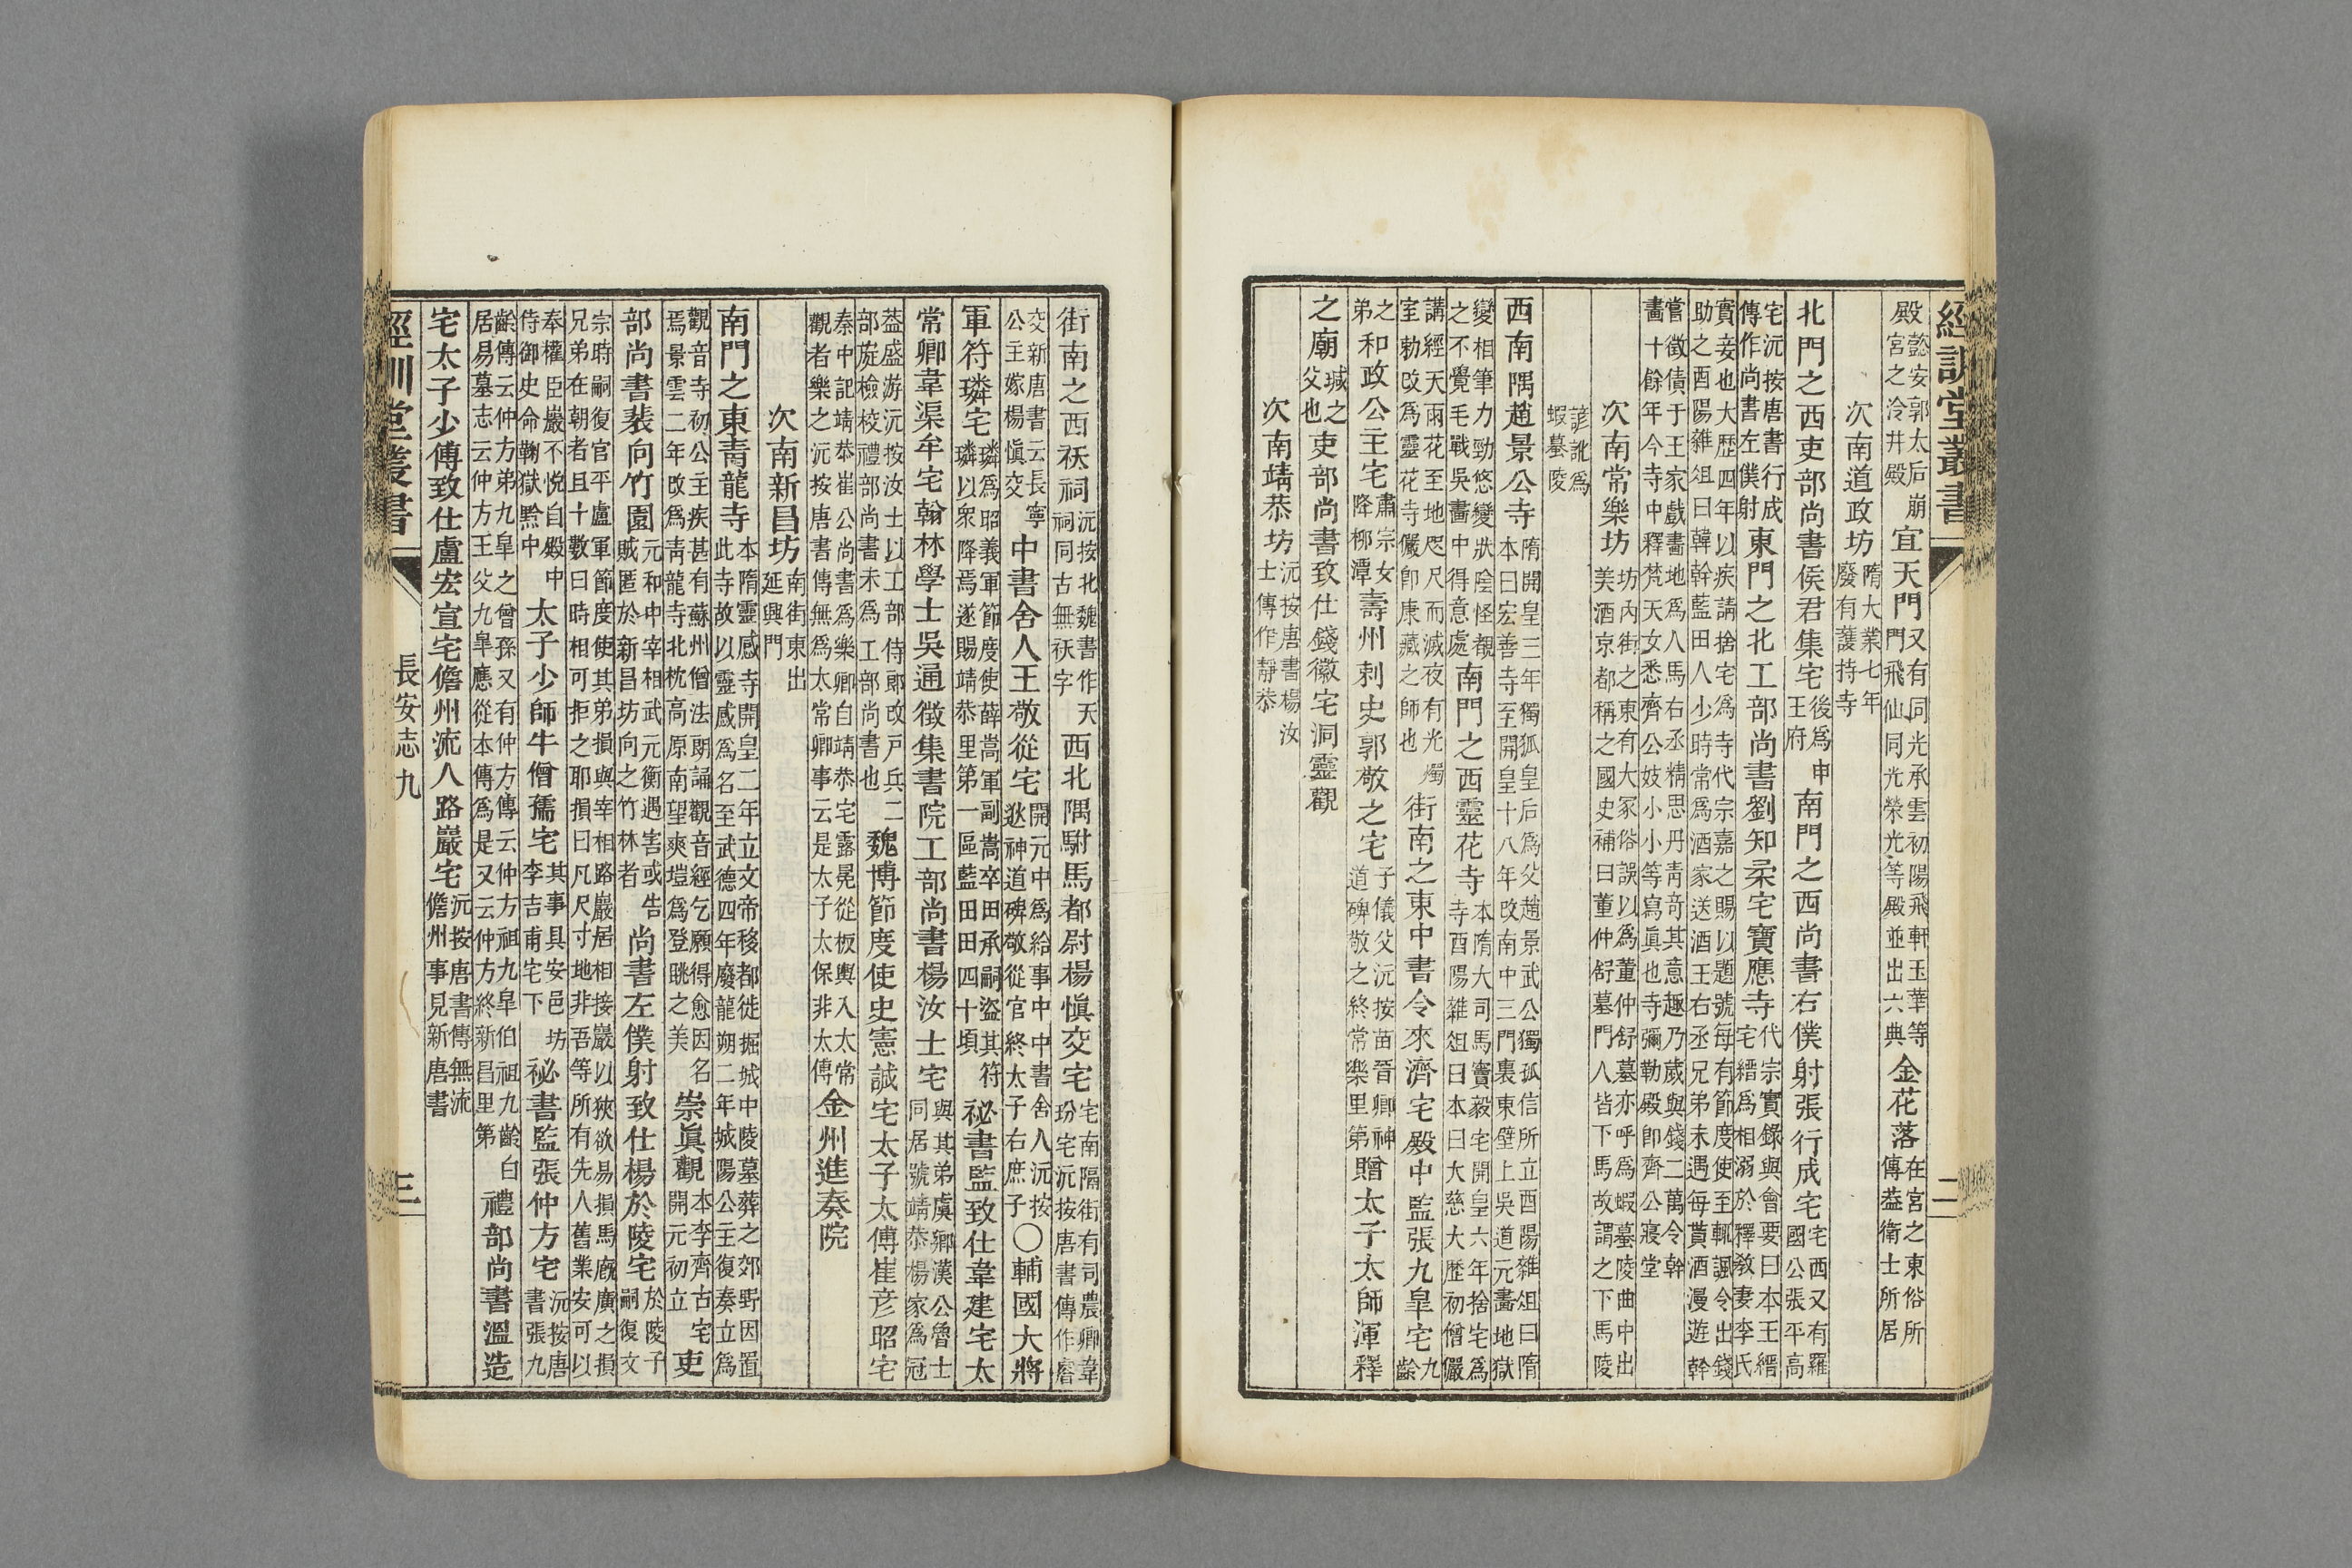 經訓堂叢書
二
殿懿安郭太后崩宮之泠井殿宜天門又有同光承雲初陽飛軒玉華等門飛仙同光榮光等殿並出六典金花落在宮之東俗所傳葢衛士所居
次南道政坊隋大業七年廢有護持寺
北門之西吏部尚書侯君集宅後爲申王府南門之西尚書右僕射張行成宅宅西又有羅國公張平高
宅沅按唐書行成傳作尚書左僕射東門之北工部尚書劉知柔宅寶應寺代宗實錄與會要曰本王縉宅縉爲相溺於釋敎妻李氏
實妾也大歷四年以疾請捨宅爲寺代宗嘉之賜以題號每有節度使至輒諷令出錢助之酉陽雜俎曰韓幹藍田人少時常爲酒家送酒王右丞兄弟未遇每貰酒漫遊幹
嘗徵債于王家戲畫地爲人馬右丞精思丹青奇其意趣乃歲與錢二萬令幹畫十餘年今寺中釋梵天女悉齊公妓小小等寫眞也寺彌勒殿卽齊公寢堂
次南常樂坊坊內街之東有大冢俗誤以爲董仲舒墓亦呼爲蝦墓陵曲中出美酒京都稱之國史補曰董仲舒墓門人皆下馬故謂之下馬陵
諺訛爲蝦墓陵
西南隅趙景公寺隋開皇三年獨狐皇后爲父趙景武公獨孤信所立酉陽雜俎曰隋本曰宏善寺至開皇十八年改南中三門裏東壁上吳道元畫地獄
變相筆力勁悠變狀陰怪覩之不覺毛戰吳畫中得意處南門之西靈花寺本隋大司馬竇毅宅開皇六年捨宅爲寺酉陽雜俎曰本曰大慈大歷初僧儼
講經天雨花至地咫尺而滅夜有光燭室勅改爲靈花寺儼卽康藏之師也街南之東中書令來濟宅殿中監張九皐宅九齡
之弟和政公主宅肅宗女降柳潭壽州刺史郭敬之宅子儀父沅按苗晉卿神道碑敬之終常樂里第贈太子太師渾釋
之廟瑊之父也吏部尚書致仕錢徽宅洞靈觀
次南靖恭坊沅按唐書楊汝士傳作靜恭
街南之西祆祠沅按北魏書作天祠同古無祆字西北隅駙馬都尉楊愼交宅宅南隔街有司農卿韋玢宅沅按唐書傳作睿
交新唐書云長寧公主嫁楊愼交中書舍人王敬從宅開元中爲給事中中書舍人沅按逖神道碑敬從官終太子右庶子〇輔國大將
軍符璘宅璘爲昭義軍節度使薛嵩軍副嵩卒田承嗣盜其符璘以衆降焉遂賜靖恭里第一區藍田田四十頃祕書監致仕韋建宅太
常卿韋渠牟宅翰林學士吳通微集書院工部尚書楊汝士宅與其弟虞卿漢公魯士同居號靖恭楊家爲冠
葢盛游沅按汝士以工部侍郎改戶兵二部㫌檢校禮部尚書未爲工部尚書也魏博節度使史憲誠宅太子太傅崔彥昭宅
秦中記靖恭崔公尚書爲樂卿自靖恭宅露冕從板輿入太常觀者樂之沅按唐書傳無爲太常卿事云是太子太保非太傅金州進奏院
次南新昌坊南街東出延興門
南門之東靑龍寺本隋靈感寺開皇二年立文帝移都徙掘城中陵墓葬之郊野因置此寺故以靈感爲名至武德四年廢龍朔二年城陽公主復奏立爲
觀音寺初公主疾甚有蘇州僧法朗誦觀音經乞願得愈因名焉景雲二年改爲靑龍寺北枕高原南望爽塏爲登眺之美崇眞觀本李齊古宅開元初立吏
部尚書裴向竹園元和中宰相武元衡遇害或告賊匿於新昌坊向之竹林者尚書左僕射致仕楊於陵宅於陵子嗣復文
宗時嗣復官平盧軍節度使其弟損與宰相路巖居相接巖以狹欲易損馬廐廣之損兄弟在朝者且十數曰時相可拒之耶損曰凡尺寸地非吾等所有先人舊業安可以
奉權臣巖不悅自殿中侍御史命鞫獄黔中太子少師牛僧孺宅其事具安邑坊李吉甫宅下祕書監張仲方宅沅按唐書張九
齡傳云仲方弟九皐之曾孫又有仲方傳云仲方祖九皐伯祖九齡白居易墓志云仲方王父九皐應從本傳爲是又云仲方終新昌里第禮部尚書溫造
宅太子少傅致仕盧宏宣宅儋州流人路巖宅沅按唐書傳無流儋州事見新唐書
經訓堂叢書
長安志九
三